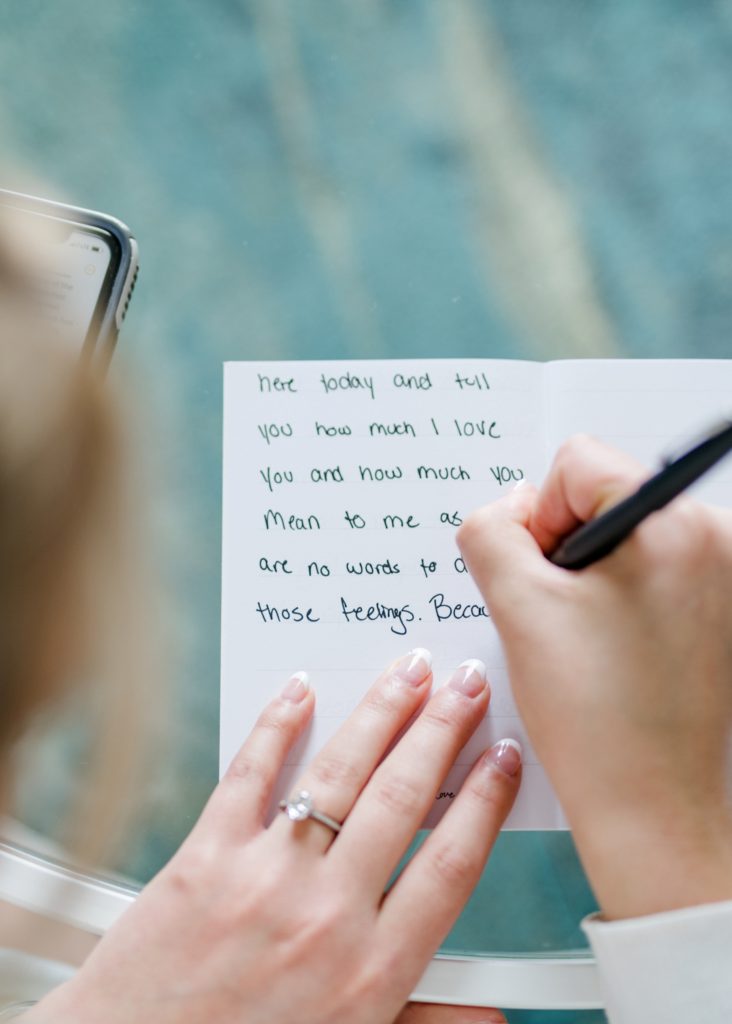 here today and tell
you how much I love
you and how much you
Mean to me as
are no words to
those feelings. Becau
ove